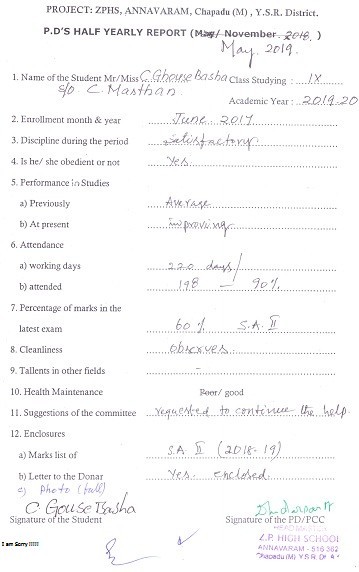 PROJECT: ZPHS, ANNAVARAM, Chapadu (M) , Y.S.R. District.
P.D'S HALF YEARLY REPORT (May/ November 2018. )
May. 2019.
1. Name of the Student Mr/Miss C. Ghouse Basha Class Studying : IX
S/o C. Masthan.
Academic Year : 2019-20
2. Enrollment month & year June. 2017
3. Discipline during the period Satisfactory.
4. Is he/ she obedient or not Yes
5. Performance in Studies
a) Previously Average
b) At present improving
6. Attendance
a) working days 220 days/
b) attended 198 — 90%
7. Percentage of marks in the
latest exam 60% S.A. II
8. Cleanliness Observes.
9. Tallents in other fields -
10. Health Maintenance Poor/ good
11. Suggestions of the committee requested to continue the help.
12. Enclosures
a) Marks list of S.A. II (2018-19)
b) Letter to the Donar Yes. enclosed.
c) Photo (full)
C. Gouse Basha
Signature of the Student Signature of the PD/PCC
HEAD MASTER
Z.P. HIGH SCHOOL
ANNAVARAM - 516 362
Chapadu (M) Y.S.R. Dt
I am Sorry !!!!!